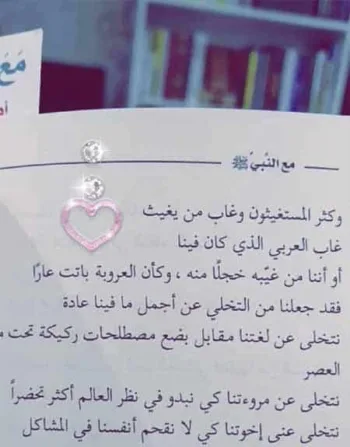 مع
مع النبي ﷺ
وكثر المستغيثون وغاب من يغيث
غاب العربي الذي كان فينا
أو أننا من غيّبه خجلًا منه ، وكأن العروبة باتت عارًا
فقد جعلنا من التخلي عن أجمل ما فينا عادة
نتخلى عن لغتنا مقابل بضع مصطلحات ركيكة تحت
العصر
نتخلى عن مروءتنا كي نبدو في نظر العالم أكثر تحضراً
نتخلى عنى إخوتنا كي لا نقحم أنفسنا في المشاكل